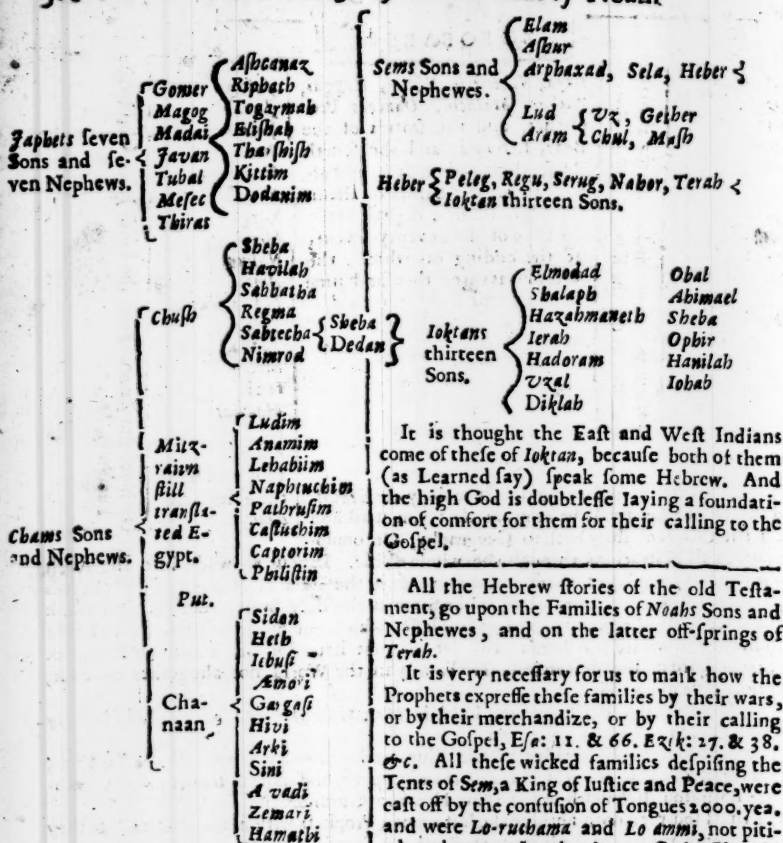 Japhets seven
Sons and se-
ven Nephews.
Gomer
Magog
Madai
Javan
Tubal
Mesec
Thiras
Ashcanaz
Riphath
Togarmah
Elishah
Tharshish
Kittim
Dodanim
Chams Sons
and Nephews.
Chush
Sheba
Havilah
Sabbatha
Regma
Sabtecha
Nimrod
Sheba
Dedan
Mitz-
raiim
still
transla-
ted E-
gypt.
Ludim
Anamim
Lehabiim
Naphtuchim
Pathrusim
Casluchim
Captorim
Philistin
Put.
Cha-
naan
Sidon
Heth
Iebusi
Æmori
Gargasi
Hivi
Arki
Sini
Arvadi
Zemari
Hamathi
Sems Sons and
Nephewes.
Elam
Ashur
Arphaxad, Sela, Heber
Lud
Aram
Uz, Gether
Chul, Mash
Heber
Peleg, Regu, Serug, Nahor, Terah
Ioktan thirteen Sons.
Ioktans
thirteen
Sons.
Elmodad
Shalaph
Hazahmaneth
Ierah
Hadoram
Uzal
Diklah
Obal
Abimael
Sheba
Ophir
Hanilah
Iobab
It is thought the East and West Indians
come of these of Ioktan, because both of them
(as Learned say) speak some Hebrew. And
the high God is doubtlesse laying a foundati-
on of comfort for them for their calling to the
Gospel.
All the Hebrew stories of the old Testa-
ment, go upon the Families of Noahs Sons and
Nephewes, and on the latter off-springs of
Terah.
It is very necessary for us to mark how the
Prophets expresse these families by their wars,
or by their merchandize, or by their calling
to the Gospel, Esa: 11. & 66. Ezik: 27. & 38.
&c. All these wicked families despising the
Tents of Sem, a King of Iustice and Peace, were
cast off by the confusion of Tongues 2000. yea.
and were Lo-ruchama and Lo ammi, not piti-